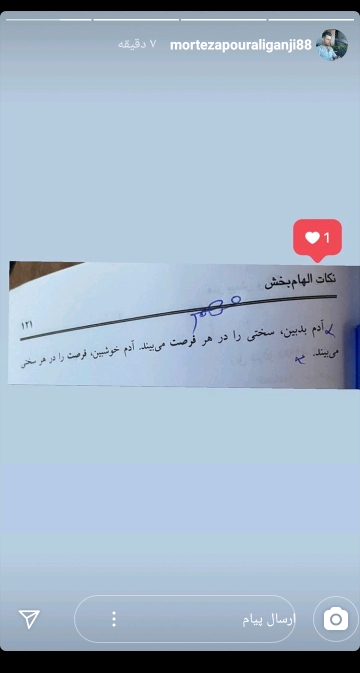 mortezapouraliganji88 ۷ دقیقه
1
نکات الهام‌بخش
۱۲۱
آدم بدبین، سختی را در هر فرصت می‌بیند. آدم خوشبین، فرصت را در هر سختی
می‌بیند.
ارسال پیام